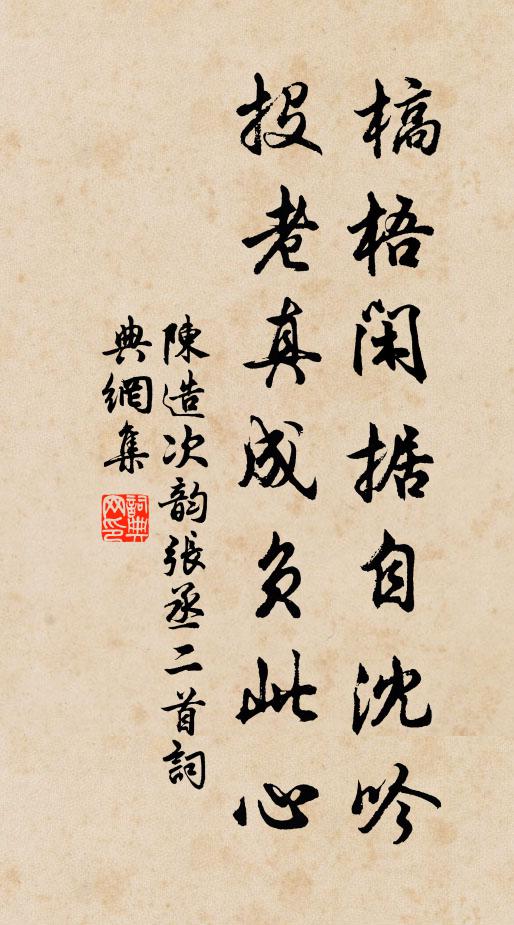 槁梧閑据自沈吟
投老真成負此心
陳造次韵張丞二首詞
典網集
詞典网印